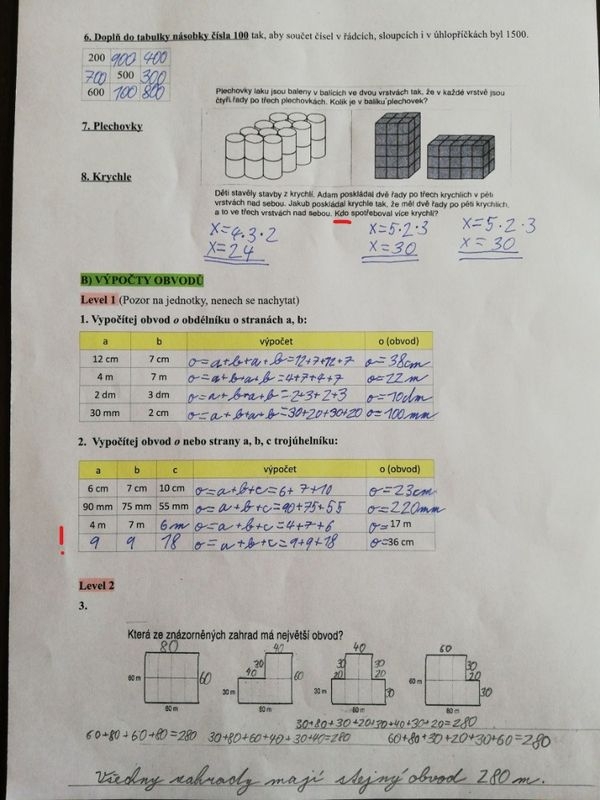 6. Doplň do tabulky násobky čísla 100 tak, aby součet čísel v řádcích, sloupcích i v úhlopříčkách byl 1500.
200 900 400
700 500 300
600 100 800
Plechovky laku jsou baleny v balících ve dvou vrstvách tak, že v každé vrstvě jsou
čtyři řady po třech plechovkách. Kolik je v balíku plechovek?
7. Plechovky
8. Krychle
Děti stavěly stavby z krychlí. Adam poskládal dvě řady po třech krychlích v pěti
vrstvách nad sebou. Jakub poskládal krychle tak, že měl dvě řady po pěti krychlích,
a to ve třech vrstvách nad sebou. Kdo spotřeboval více krychlí?
x=4.3.2 x=5.2.3 x=5.2.3
x=24 x=30 x=30
B) VÝPOČTY OBVODŮ
Level 1 (Pozor na jednotky, nenech se nachytat)
1. Vypočítej obvod o obdélníku o stranách a, b:
a b výpočet o (obvod)
12 cm 7 cm o=a+b+a+b=12+7+12+7 o=38cm
4 m 7 m o=a+b+a+b=4+7+4+7 o=22m
2 dm 3 dm o=a+b+a+b=2+3+2+3 o=10dm
30 mm 2 cm o=a+b+a+b=30+20+30+20 o=100mm
2. Vypočítej obvod o nebo strany a, b, c trojúhelníku:
a b c výpočet o (obvod)
6 cm 7 cm 10 cm o=a+b+c=6+7+10 o=23cm
90 mm 75 mm 55 mm o=a+b+c=90+75+55 o=220mm
4 m 7 m 6m o=a+b+c=4+7+6 o=17 m
! 9 9 18 o=a+b+c=9+9+18 o=36 cm
Level 2
3.
Která ze znázorněných zahrad má největší obvod?
80 40 40 60
30 30 30 30
60 m 60 40 60 20 20 60 m 20
30 m 30 m 30 30
80 m 80 m 80 m 80 m
30+80+30+20+30+40+30+20=280
60+80+60+80=280 30+80+60+40+30+40=280 60+80+30+20+30+60=280
Všechny zahrady mají stejný obvod 280 m.